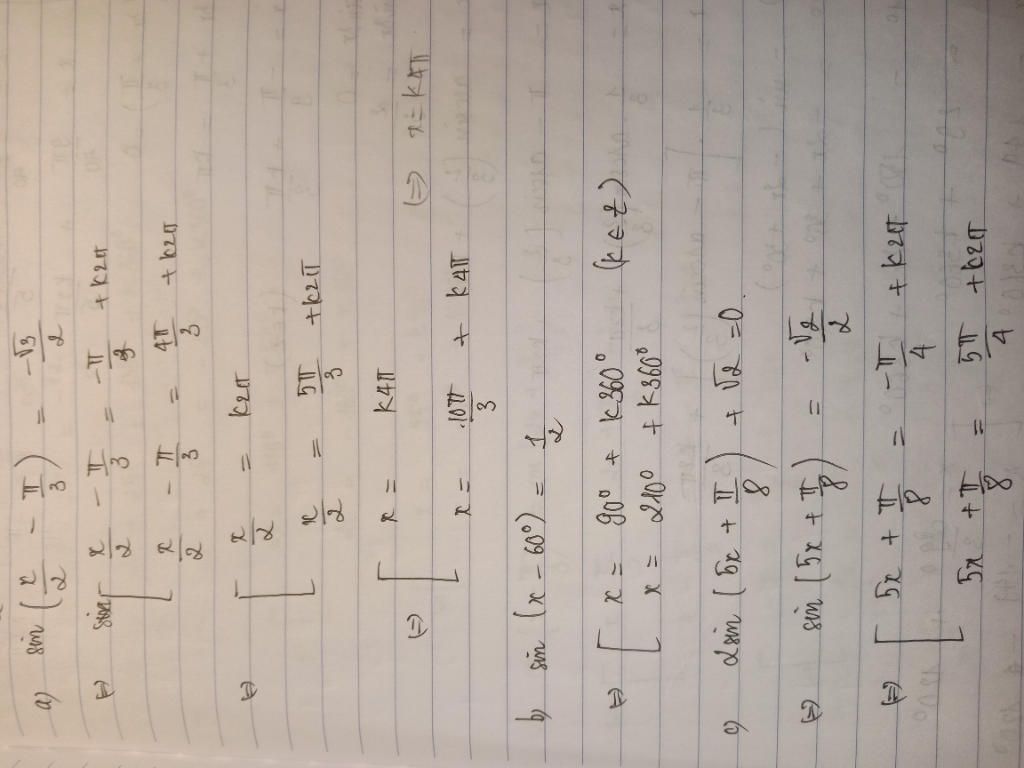 a) sin (x/2 - π/3) = -√3/2
⇔ [ x/2 - π/3 = -π/3 + k2π
x/2 - π/3 = 4π/3 + k2π
⇔ [ x/2 = k2π
x/2 = 5π/3 + k2π
⇔ [ x = k4π
x = 10π/3 + k4π (=) x = k4π
b) sin (x - 60°) = 1/2
⇔ [ x = 90° + k360°
x = 210° + k360° (k ∈ Z)
c) 2sin (5x + π/8) + √2 = 0
⇔ sin (5x + π/8) = -√2/2
⇔ [ 5x + π/8 = -π/4 + k2π
5x + π/8 = 5π/4 + k2π